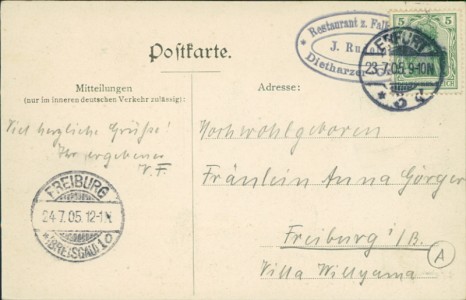 Postkarte.
Mitteilungen
(nur im inneren deutschen Verkehr zulässig):
Adresse:
* Restaurant z. Falk
J. Ru
Dietharzer
5 5
ERFURT
23.7.05.9-10N
* 3 d.
Viel herzliche Grüße!
Ihr ergebener
V.F.
FREIBURG
24.7.05.12-1
*(BREISGAU)1c
Hochwohlgeboren
Fräulein Anna Görger
Freiburg i/B.
Villa Willyama
A